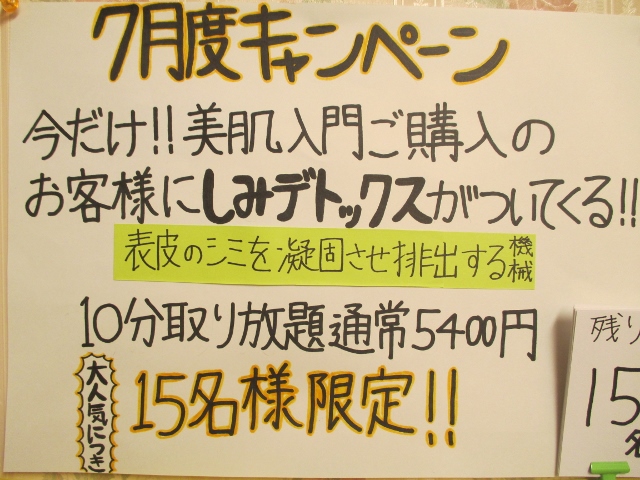 7月度キャンペーン
今だけ!!美肌入門ご購入の
お客様にしみデトックスがついてくる!!
表皮のシミを凝固させ排出する機械
10分取り放題通常5400円
大人気につき
15名様限定!!
残り
15
名